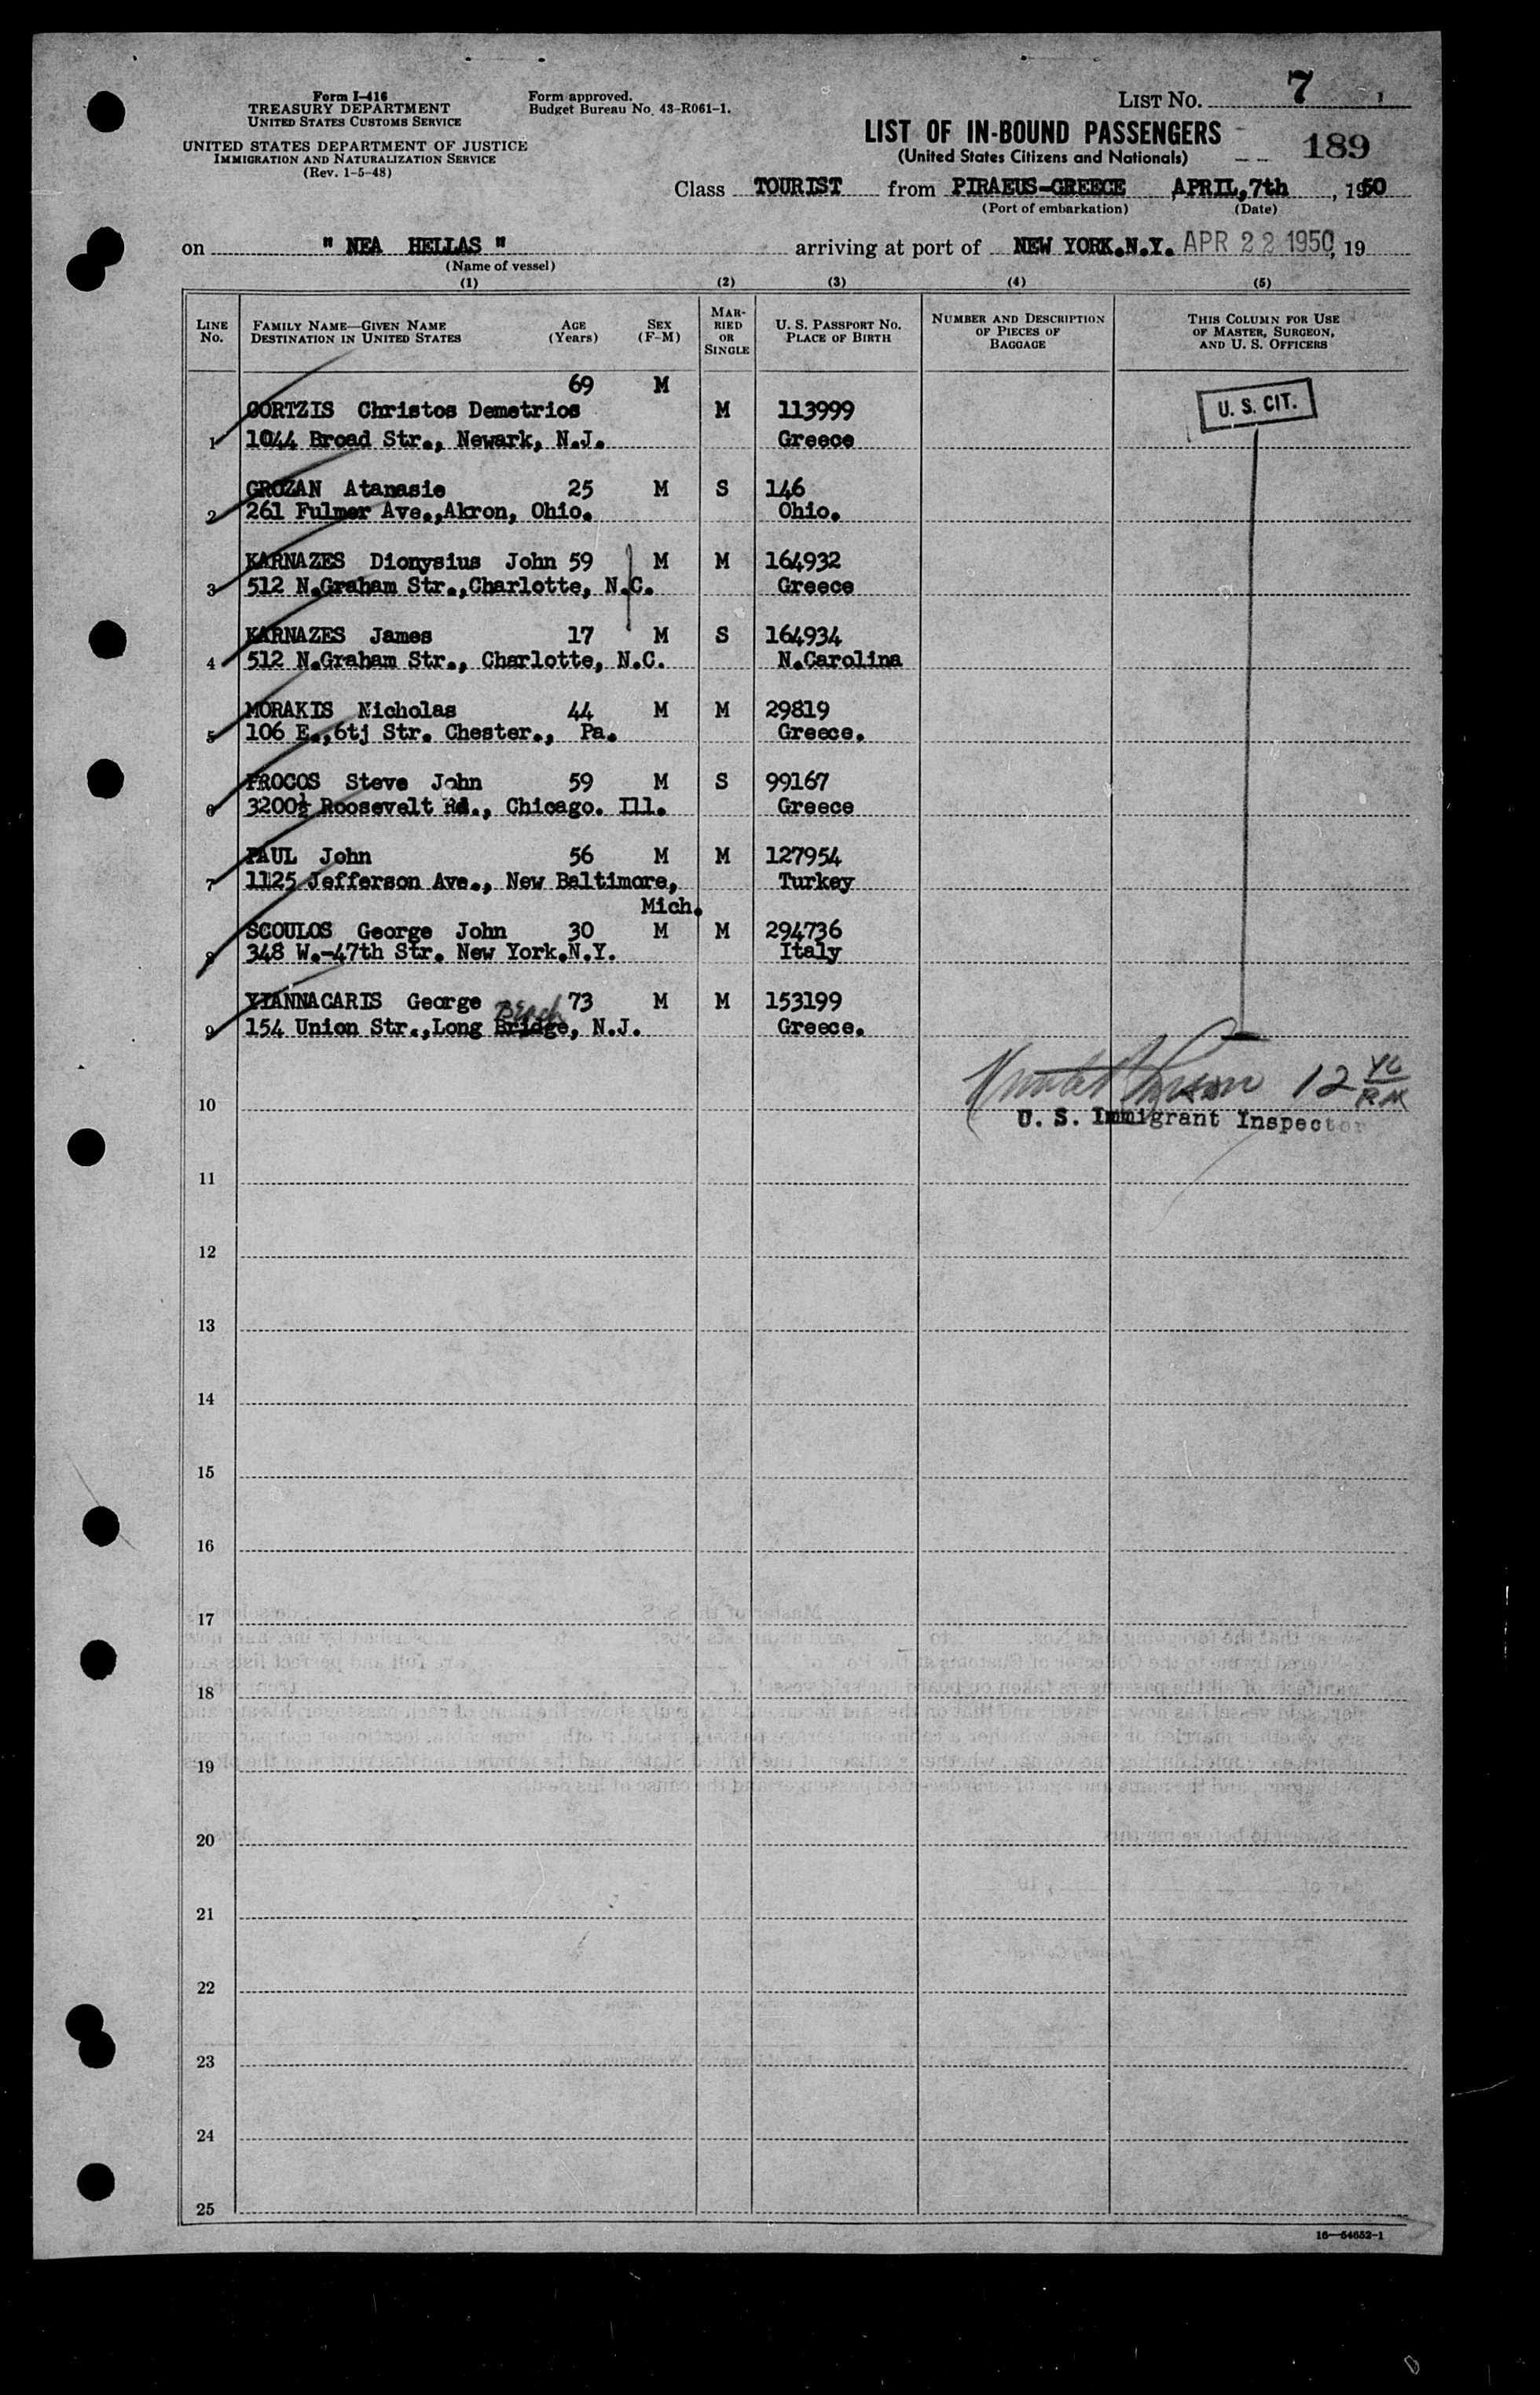 Form I-416
TREASURY DEPARTMENT
UNITED STATES CUSTOMS SERVICE
UNITED STATES DEPARTMENT OF JUSTICE
IMMIGRATION AND NATURALIZATION SERVICE
(Rev. 1-5-48)
Form approved.
Budget Bureau No. 43-R061-1.
LIST NO. 7
LIST OF IN-BOUND PASSENGERS
(United States Citizens and Nationals)
189
Class TOURIST from PIRAEUS-GREECE APRIL,7th, 1950
(Port of embarkation) (Date)
on " NEA HELLAS " arriving at port of NEW YORK.N.Y. APR 22 1950, 19
(Name of vessel)
(1) (2) (3) (4) (5)
LINE NO.
FAMILY NAME—GIVEN NAME DESTINATION IN UNITED STATES
AGE (Years)
SEX (F-M)
MARRIED OR SINGLE
U. S. PASSPORT NO. PLACE OF BIRTH
NUMBER AND DESCRIPTION OF PIECES OF BAGGAGE
THIS COLUMN FOR USE OF MASTER, SURGEON, AND U. S. OFFICERS
69 M
GORTZIS Christos Demetrios M 113999
1 1044 Broad Str., Newark, N.J. Greece
U. S. CIT.
GROZAN Atanasie 25 M S 146
2 261 Fulmer Ave.,Akron, Ohio. Ohio.
KARNAZES Dionysius John 59 M M 164932
3 512 N.Graham Str.,Charlotte, N.C. Greece
KARNAZES James 17 M S 164934
4 512 N.Graham Str., Charlotte, N.C. N.Carolina
MORAKIS Nicholas 44 M M 29819
5 106 E.,6tj Str. Chester., Pa. Greece.
PROCOS Steve John 59 M S 99167
6 3200½ Roosevelt Rd., Chicago. Ill. Greece
PAUL John 56 M M 127954
7 1125 Jefferson Ave., New Baltimore, Turkey
Mich.
SCOULOS George John 30 M M 294736
8 348 W.-47th Str. New York.N.Y. Italy
YIANNACARIS George 73 M M 153199
Beach
9 154 Union Str.,Long Bridge, N.J. Greece.
12
10
U. S. Immigrant Inspector
11
12
13
14
15
16
17
18
19
20
21
22
23
24
25
16—54652-1